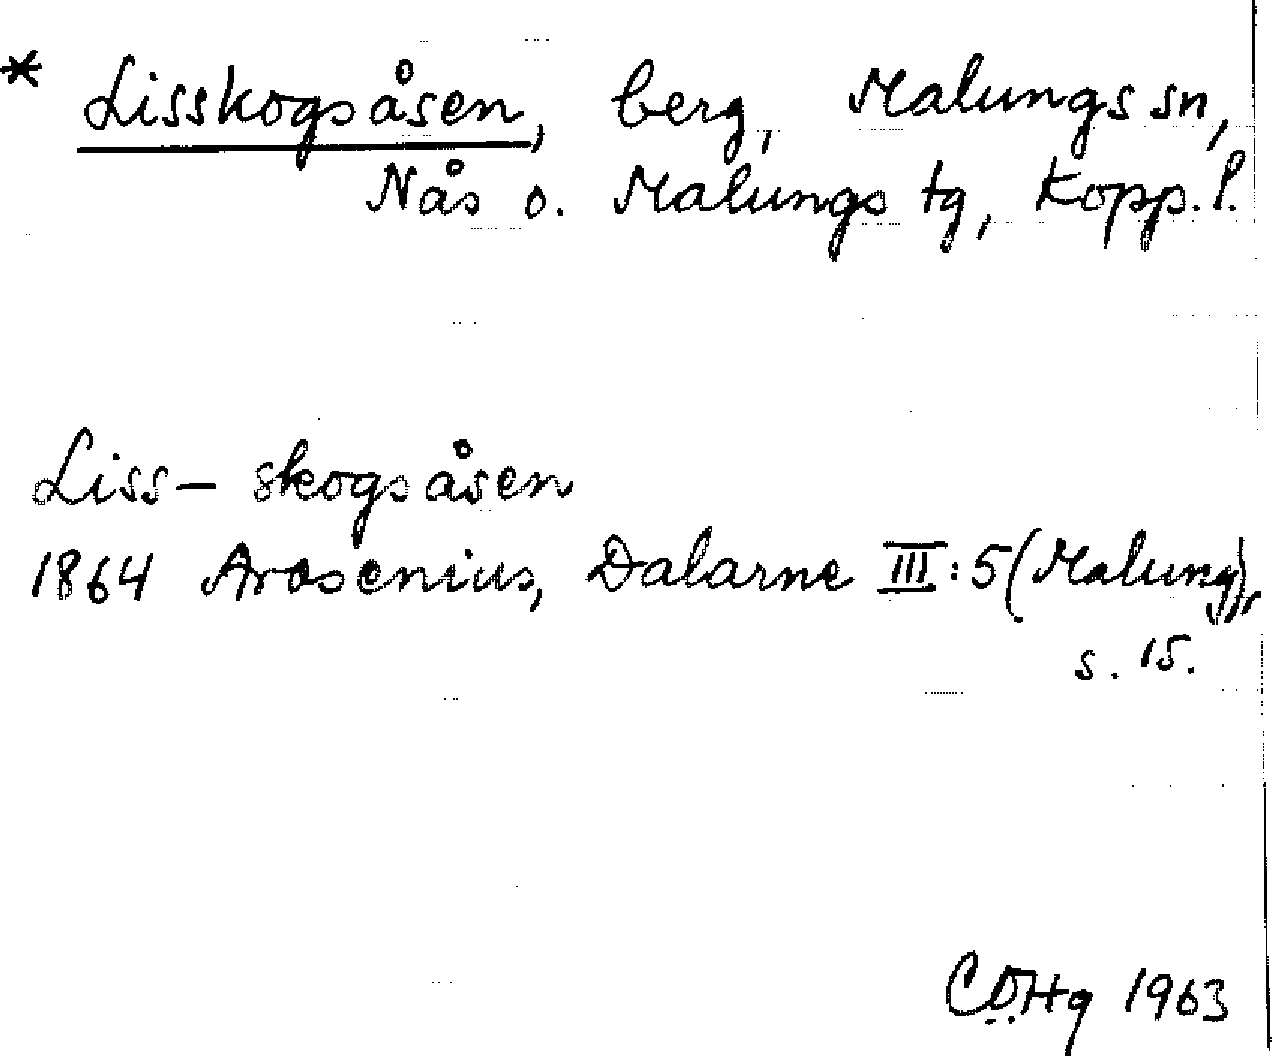 * Lisskogsåsen, berg, Malungs sn,
Nås o. Malungs tg, Kopp. l.
Liss- skogsåsen
1864 Arosenius, Dalarne III:5 (Malung),
s. 15.
CÖHg 1963